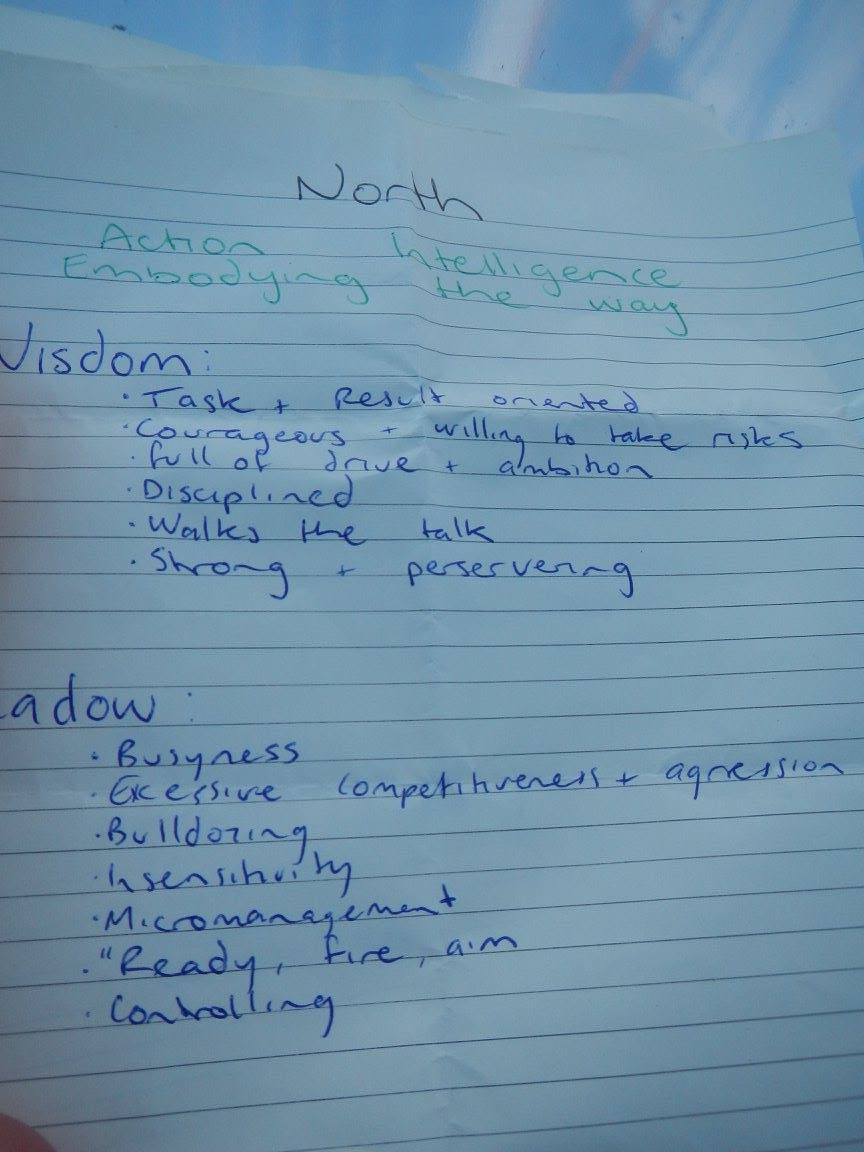 North
Action Intelligence
Embodying the way
Wisdom:
· Task + Result oriented
· Courageous + willing to take risks
· full of drive + ambition
· Disciplined
· Walks the talk
· Strong + perservering
adow:
· Busyness
· Excessive competitiveness + agression
· Bulldozing
· Insensitivity
· Micromanagement
· "Ready, fire, aim
· Controlling